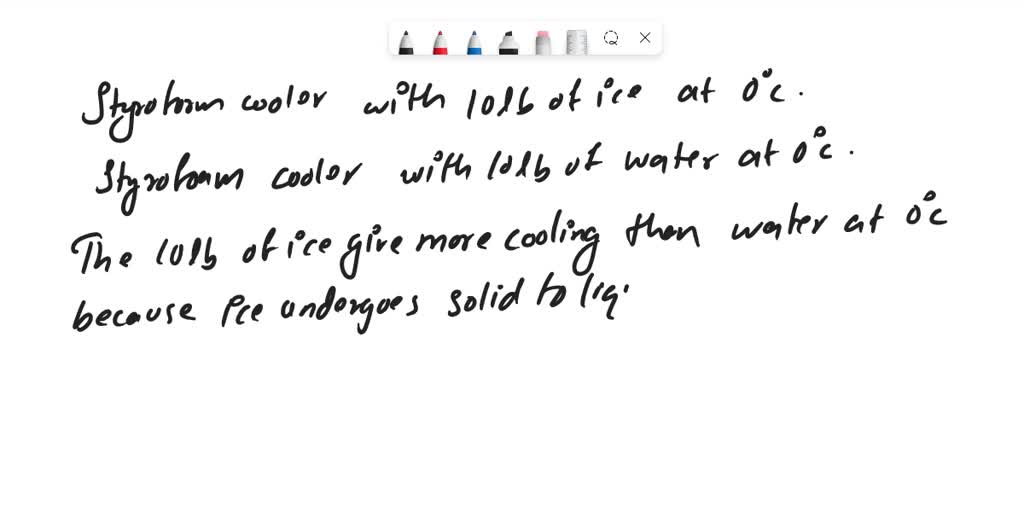 Styrofoam cooler with 10lb of ice at 0°c.
Styrofoam cooler with 10lb of water at 0°c.
The 10lb of ice give more cooling then water at 0°c
because ice undergoes solid to liq